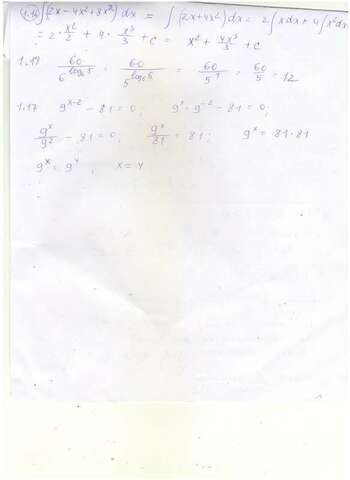 1.16) ∫(2x - 4x² + 8x²) dx = ∫(2x+4x²)dx = 2∫xdx + 4∫x²dx
= 2·x²/2 + 4·x³/3 + c = x² + 4x³/3 + c
1.17 60/6^(log₆5) = 60/5^(log₆6) = 60/5¹ = 60/5 = 12
1.17 9^(x-2) - 81 = 0; 9^x · 9^(-2) - 81 = 0;
9^x/9² - 81 = 0; 9^x/81 = 81; 9^x = 81·81
9^x = 9⁴; x = 4